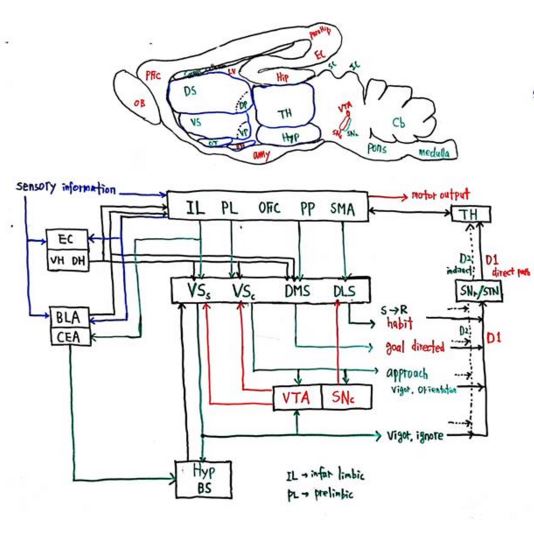 paraHip
EC
PFC
LV
Hip
SC
IC
OB
DS
GP
TH
VTA
SNr
SNc
Cb
VS
VP
Hyp
OT
amy
pons
medulla
sensory information
motor output
IL PL OFC PP SMA
TH
EC
VH DH
D2 indirect
D1 direct path
VSs VSc DMS DLS
SNr/STN
BLA
CEA
S→R
habit
D2
D1
goal directed
approach
vigor, orientation
VTA SNc
vigor, ignore
Hyp
BS
IL → infar limbic
PL → prelimbic